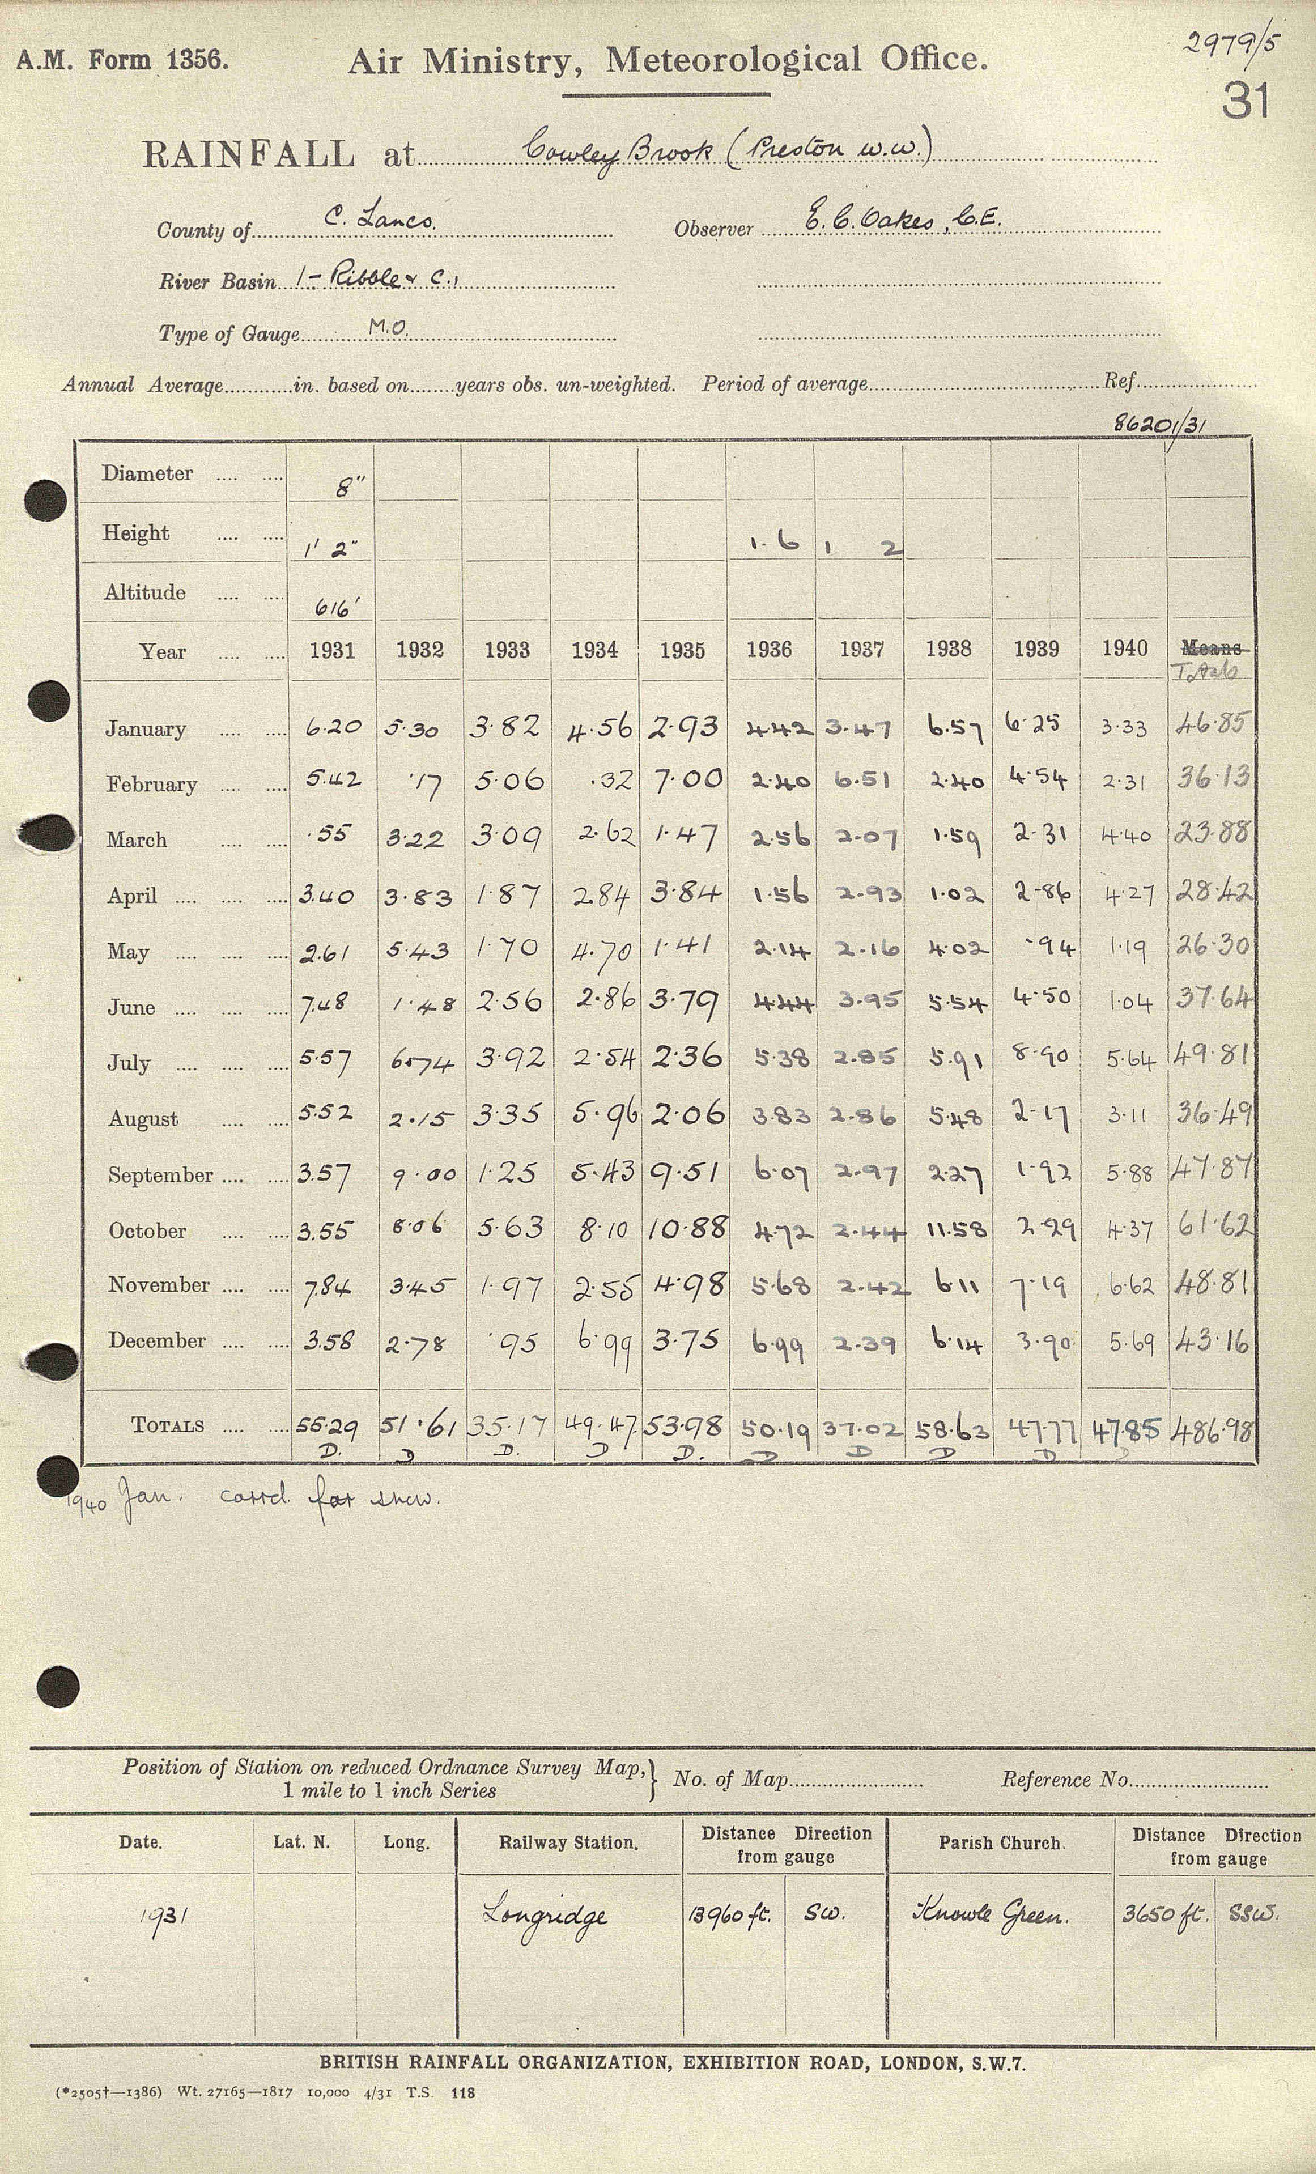 2979/5
A.M. Form 1356. Air Ministry, Meteorological Office.
31
RAINFALL at Cowley Brook (Preston W.W.)
County of C. Lancs. Observer E. C. Oakes, C.E.
River Basin 1- Ribble & C.,
Type of Gauge M.O.
Annual Average in. based on years obs. un-weighted. Period of average Ref.
86201/31
Diameter 8"
Height 1' 2" 1.6 1 2
Altitude 616'
Year 1931 1932 1933 1934 1935 1936 1937 1938 1939 1940 Means
Totals
January 6.20 5.30 3.82 4.56 2.93 4.42 3.47 6.57 6.25 3.33 46.85
February 5.42 .17 5.06 .32 7.00 2.40 6.51 2.40 4.54 2.31 36.13
March .55 3.22 3.09 2.62 1.47 2.56 2.07 1.59 2.31 4.40 23.88
April 3.40 3.83 1.87 2.84 3.84 1.56 2.93 1.02 2.86 4.27 28.42
May 2.61 5.43 1.70 4.70 1.41 2.14 2.16 4.02 .94 1.19 26.30
June 7.48 1.48 2.56 2.86 3.79 4.44 3.95 5.54 4.50 1.04 37.64
July 5.57 6.74 3.92 2.54 2.36 5.38 2.85 5.91 8.90 5.64 49.81
August 5.52 2.15 3.35 5.96 2.06 3.83 2.86 5.48 2.17 3.11 36.49
September 3.57 9.00 1.25 5.43 9.51 6.07 2.97 2.27 1.92 5.88 47.87
October 3.55 8.06 5.63 8.10 10.88 4.72 2.44 11.58 2.29 4.37 61.62
November 7.84 3.45 1.97 2.55 4.98 5.68 2.42 6.11 7.19 6.62 48.81
December 3.58 2.78 .95 6.99 3.75 6.99 2.39 6.14 3.90 5.69 43.16
TOTALS 55.29 51.61 35.17 49.47 53.98 50.19 37.02 58.63 47.77 47.85 486.98
D. D D. D D. D D D D D
1940 Jan. corrd. for snow.
Position of Station on reduced Ordnance Survey Map, } No. of Map Reference No.
1 mile to 1 inch Series
Date. Lat. N. Long. Railway Station. Distance Direction from gauge Parish Church. Distance Direction from gauge
1931 Longridge 13960 ft. SW. Knowle Green. 3650 ft. SSW.
BRITISH RAINFALL ORGANIZATION, EXHIBITION ROAD, LONDON, S.W.7.
(*2505†—1386) Wt. 27165—1817 10,000 4/31 T.S. 118